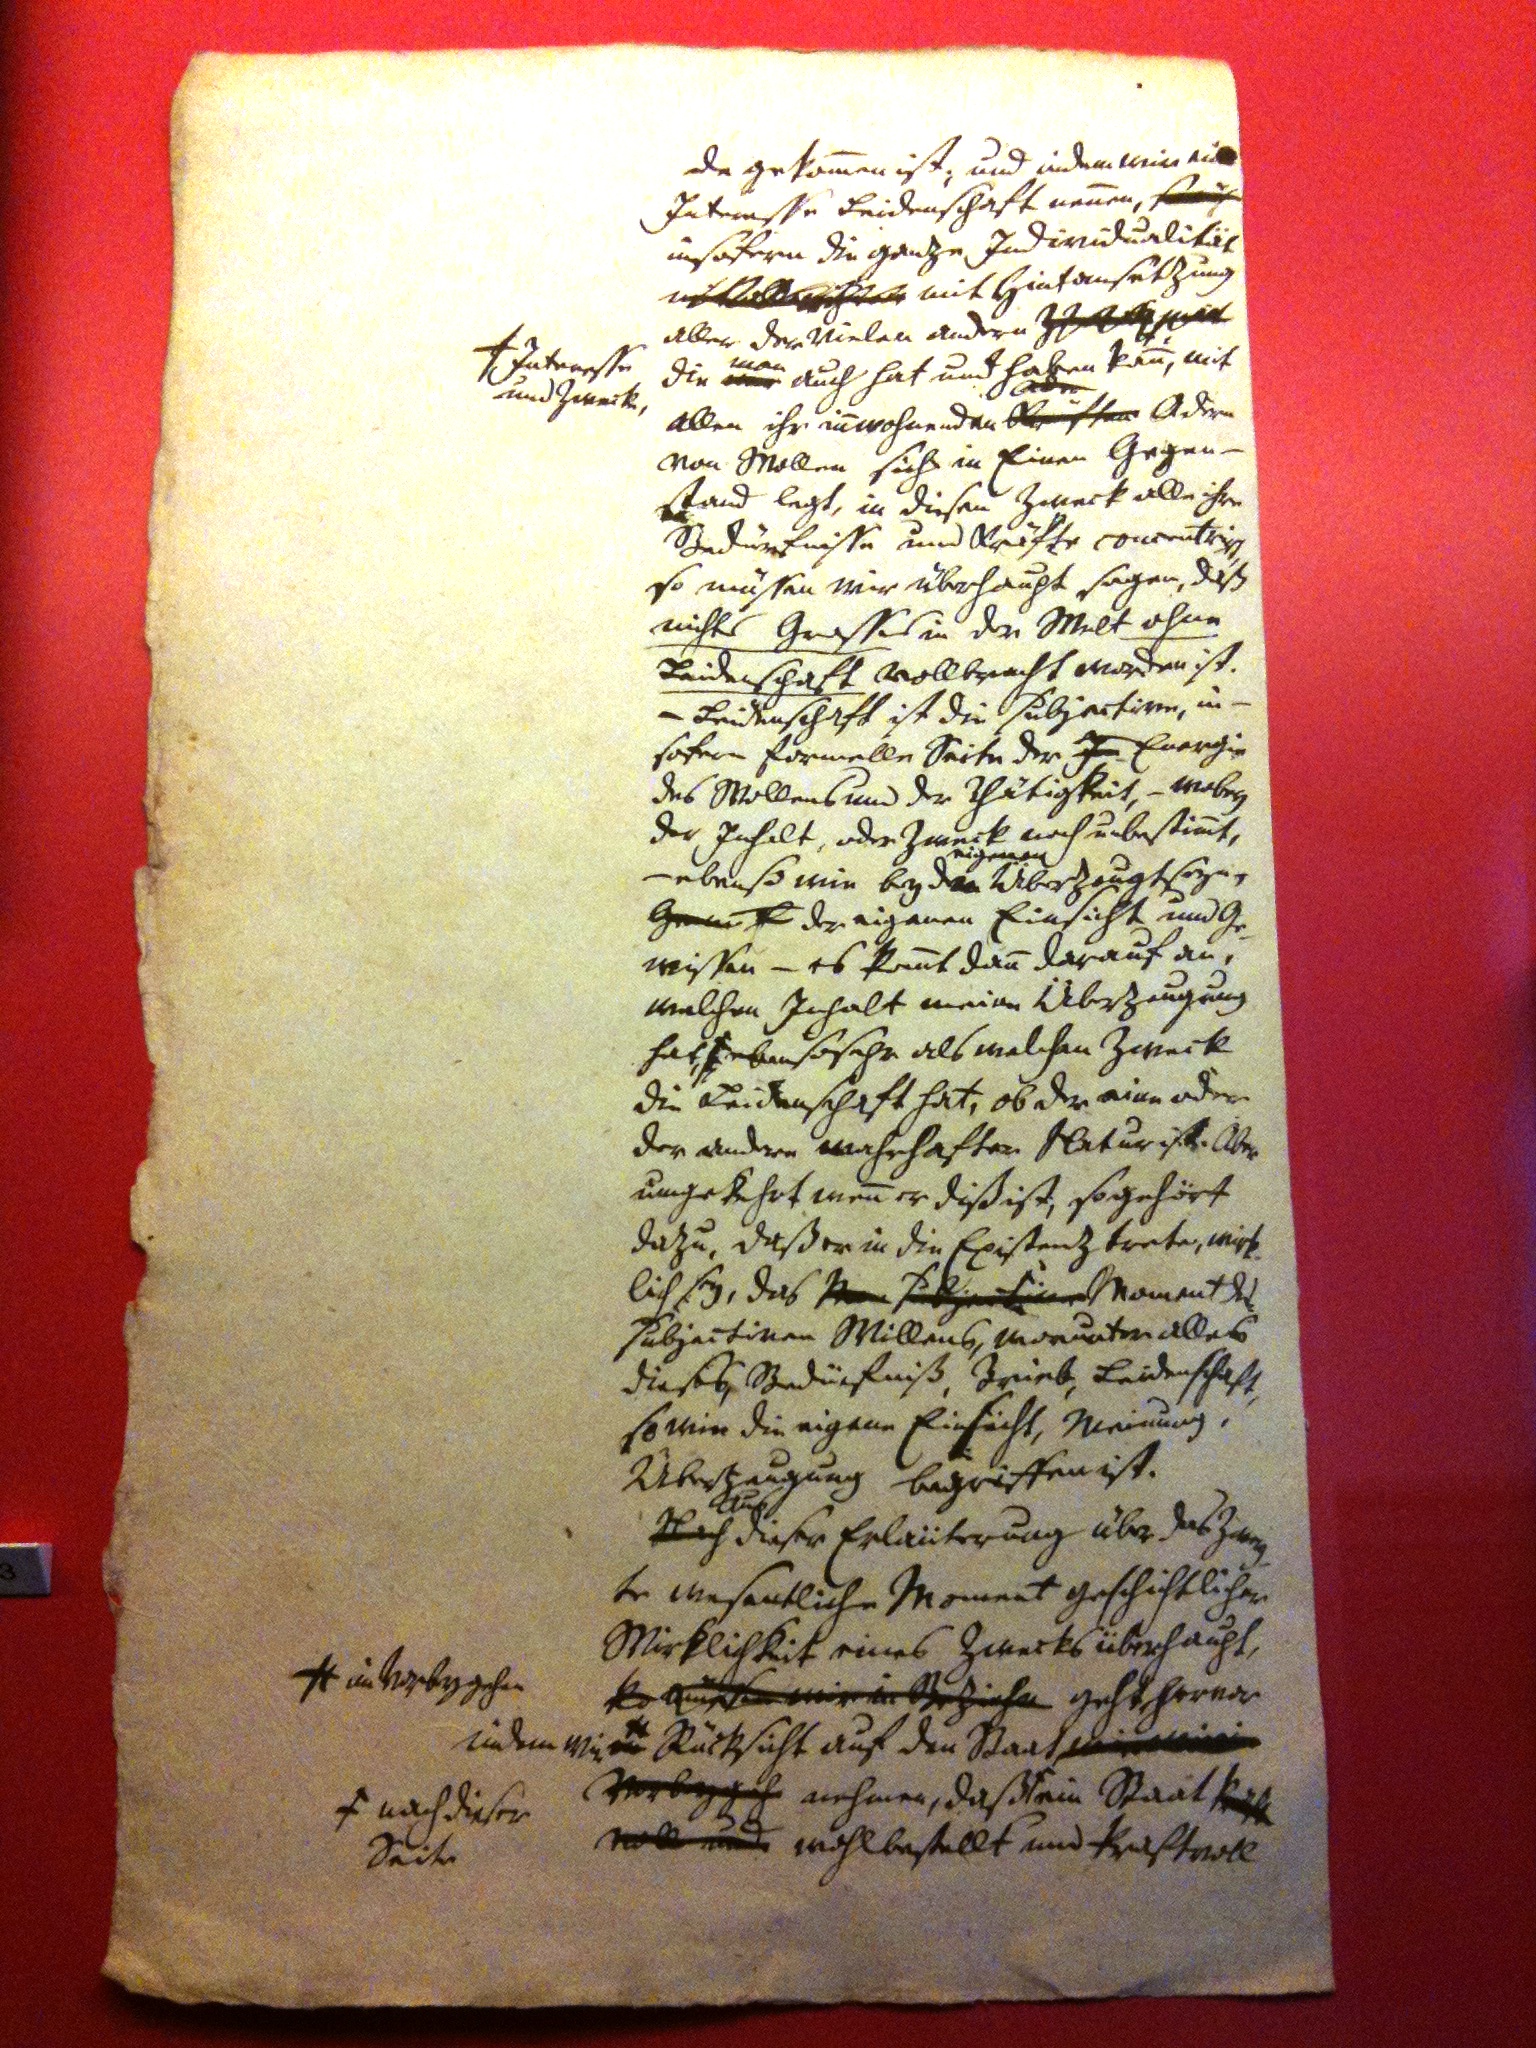 de gekom̄en ist; und indem wir ein
Interesse Leidenschaft nen̄en,
insofern die gantze Individualität
mit Hintansetzung
aller der vielen andern
† Interesse
und Zwecke,
die man auch hat und haben kan̄, mit
allen ihr in̄wohnenden Adern
von Wollen sich in Einen Gegen-
stand legt, in diesen Zweck alle ihre
Bedürfnisse und Kräfte concentrirt,
so müssen wir überhaupt sagen, daß
nichts Grosses in der Welt ohne
Leidenschaft vollbracht worden ist.
– Leidenschaft ist die subjective, in-
sofern formelle Seite der Energie
des Wollens und der Thätigkeit, – wobey
der Inhalt, oder Zweck noch unbestim̄t,
– ebenso wie bey dem eigenen Überzeugtseyn,
der eigenen Einsicht und Ge-
wissen – es kom̄t dan̄ darauf an,
welchen Inhalt meine Überzeugung
hat, ebensosehr als welchen Zweck
die Leidenschaft hat, ob der eine oder
der andere wahrhafter Natur ist. Aber
umgekehrt wen̄ er diß ist, so gehört
dazu, daß er in die Existenz trete, wirk-
lich sey, das Moment des
subjectiven Willens, worunter alles
dieses, Bedürfniß, Trieb, Leidenschaft,
so wie die eigene Einsicht, Meinung,
Überzeugung begriffen ist.
Aus
Nach dieser Erläuterung über das zwey-
te wesentliche Moment geschichtlicher
Wirklichkeit eines Zwecks überhaupt,
geht hervor
im Vorbeygehen
indem wir Rücksicht auf den Staat
Vorbeygeh nehmen, daß ein Staat
† nach dieser
Seite
voll und wohlbestellt und kraftvoll